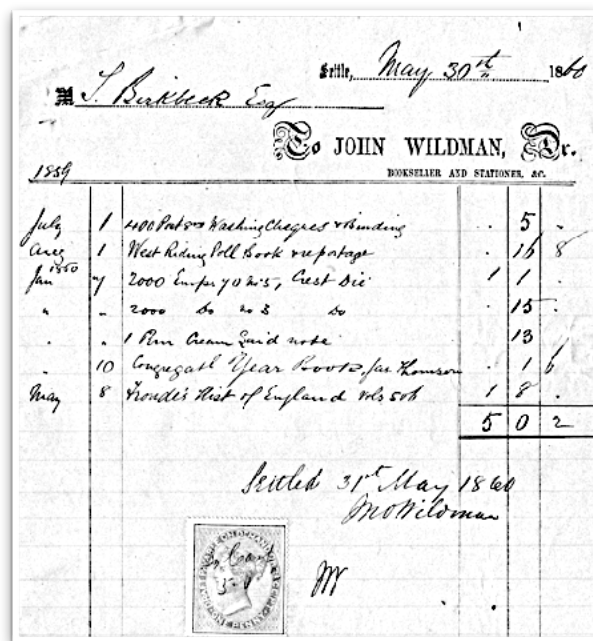 Settle, May 30th 1860
M J. Birkbeck Esq
To JOHN WILDMAN, Dr.
BOOKSELLER AND STATIONER, &c.
1859
July 1 400 Post 8vo Washing Cheques & Binding . 5 .
Aug 1 West Riding Poll Book & reportage . 16 8
Jan 1860 7 2000 Emps yo No 5, Crest Die 1 1 .
" " 2000 Do No 3 Do . 15 .
. " 1 Rm Cream Laid note . 13 .
. 10 Congregatl Year Book, Jas Thomson . 1 6
May 8 Froude's Hist of England vols 5 & 6 1 8 .
5 0 2
Settled 31st May 1860
Jno Wildman
JW